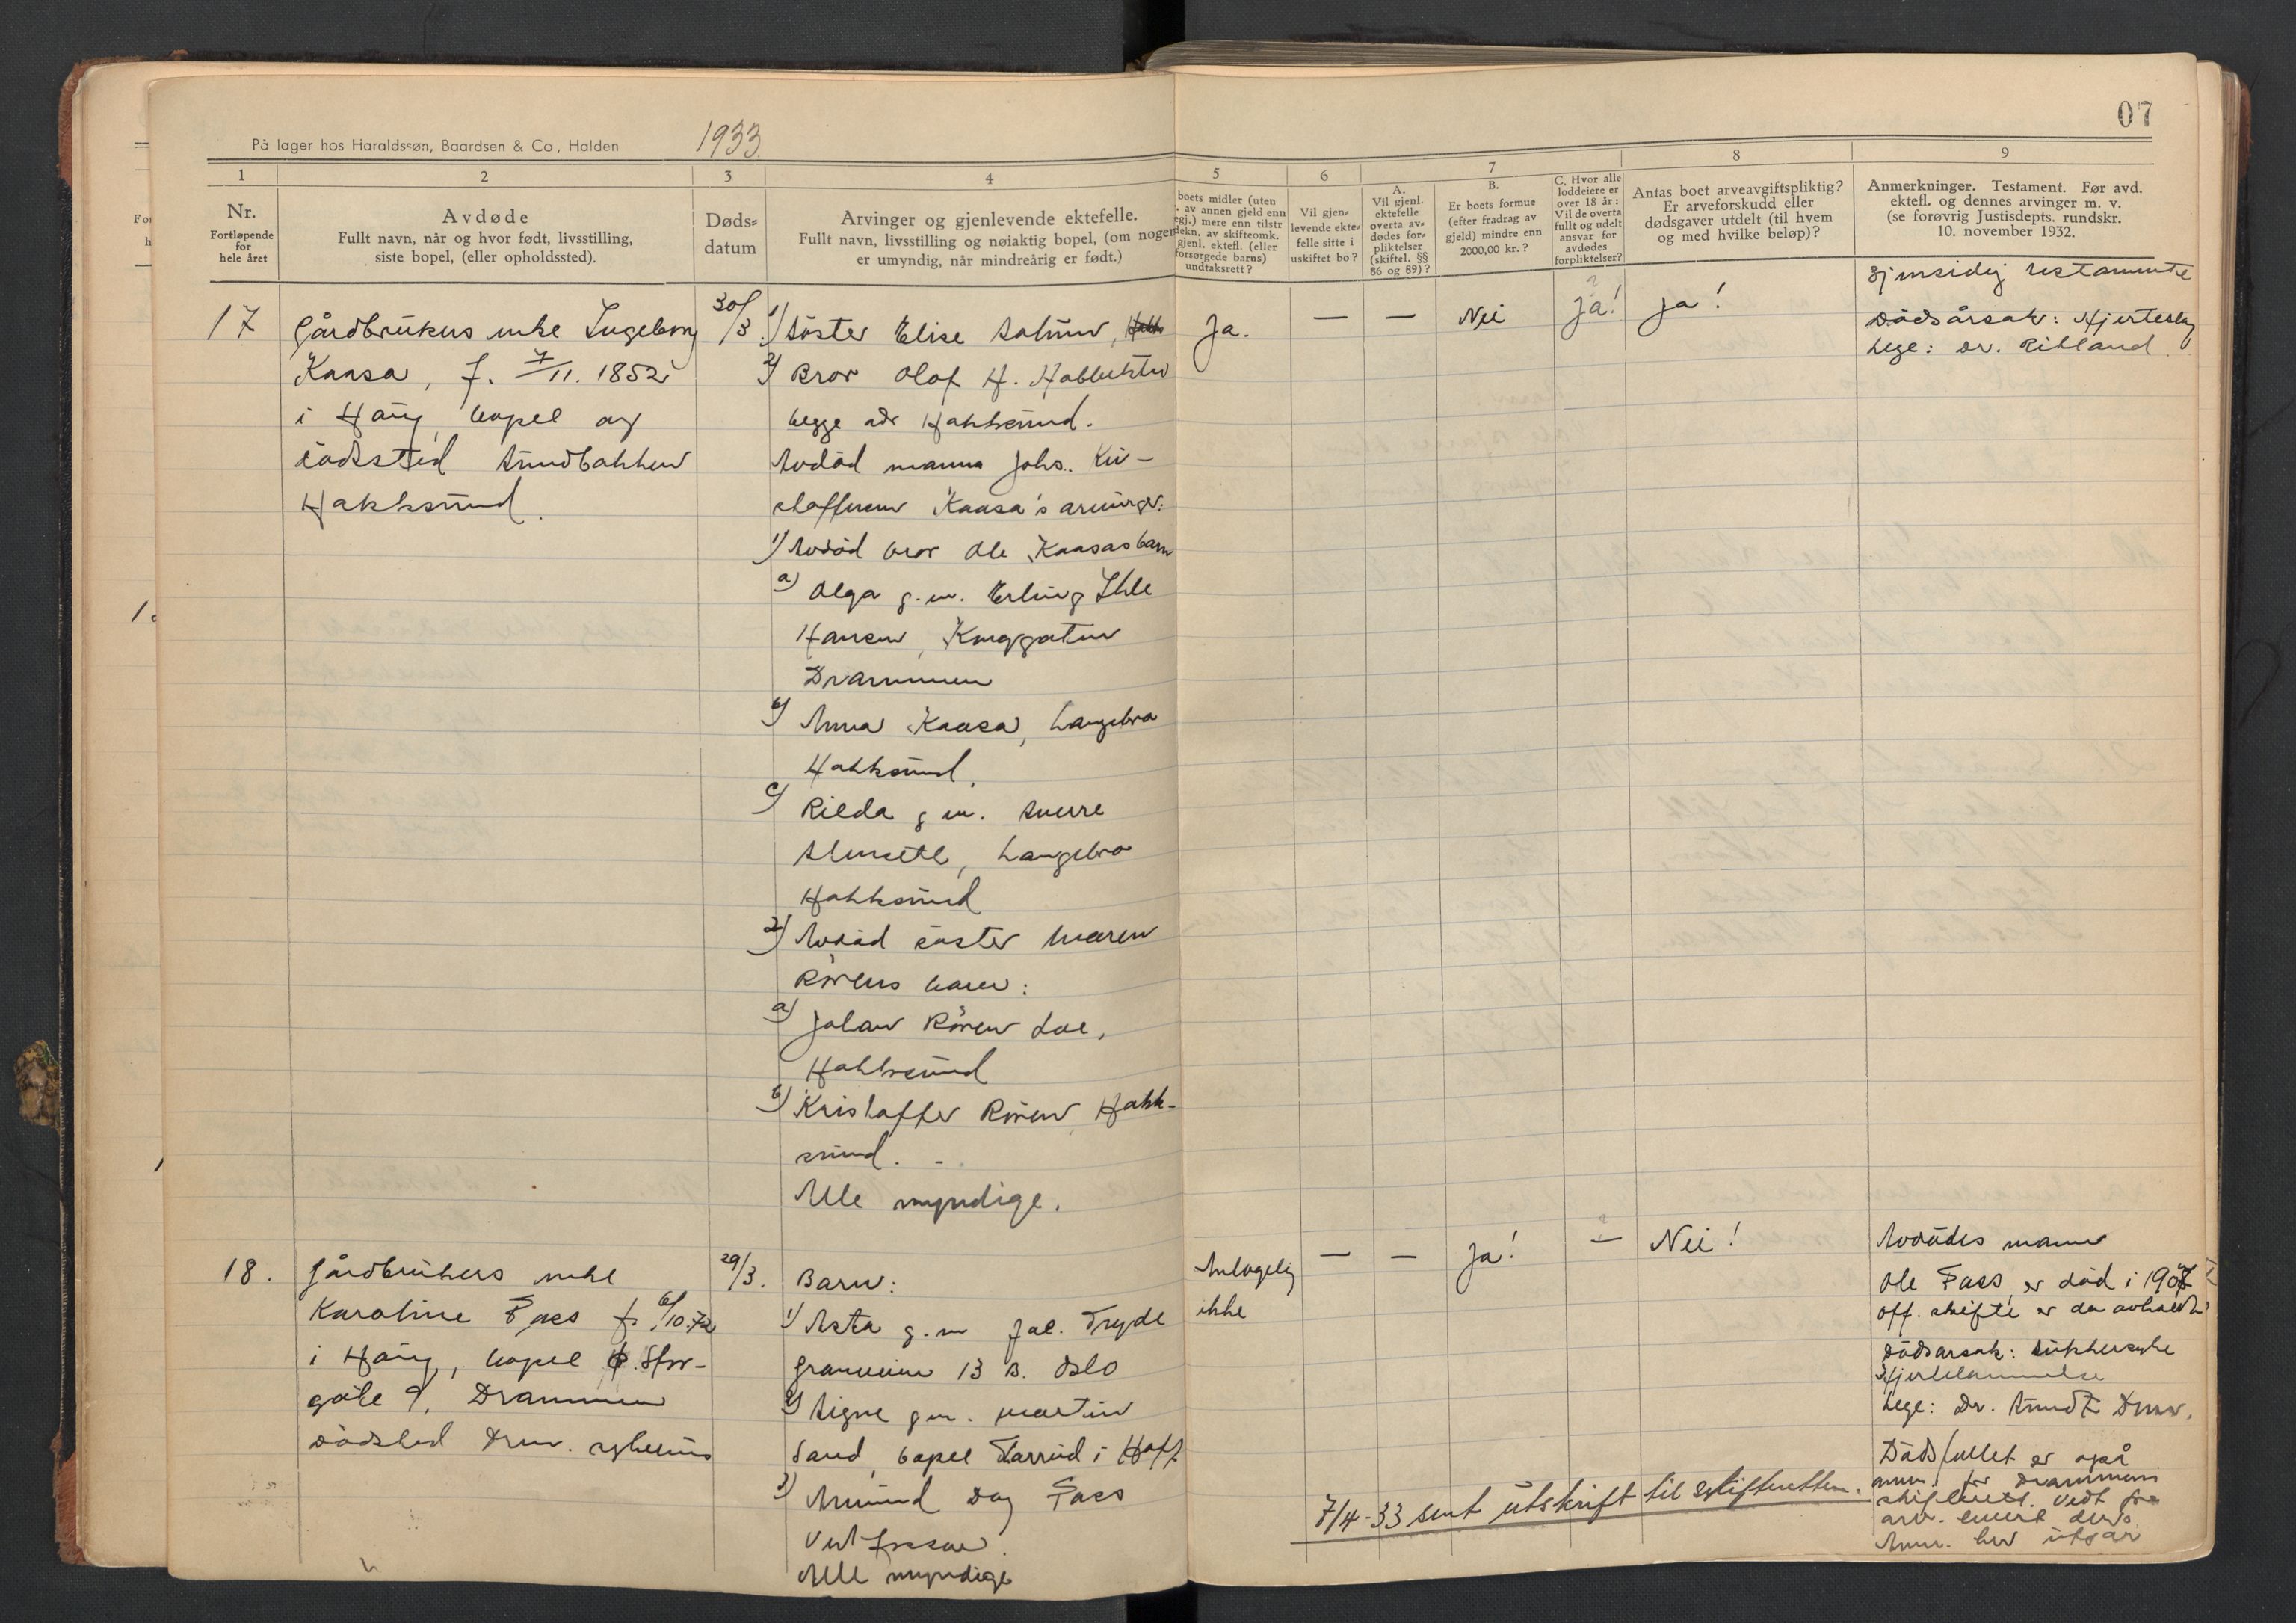 07
På lager hos Haraldssøn, Baardsen & Co, Halden
1933.
1
2
3
4
5
6
7
8
9
Nr.
Fortløpende
for
hele året
Avdøde
Fullt navn, når og hvor født, livsstilling,
siste bopel, (eller opholdssted).
Døds-
datum
Arvinger og gjenlevende ektefelle.
Fullt navn, livsstilling og nøiaktig bopel, (om nogen
er umyndig, når mindreårig er født.)
boets midler (uten
av annen gjeld enn
egj.) mere enn tilstr
dekn. av skifteomk.
gjenl. ektefl. (eller
forsørgede barns)
undtaksrett?
Vil gjen-
levende ekte-
felle sitte i
uskiftet bo?
A.
Vil gjenl.
ektefelle
overta av-
dødes for-
pliktelser
(skiftel. §§
86 og 89)?
B.
Er boets formue
(efter fradrag av
gjeld) mindre enn
2000,00 kr.?
C. Hvor alle
loddeiere er
over 18 år:
Vil de overta
fullt og udelt
ansvar for
avdødes
forpliktelser?
Antas boet arveavgiftspliktig?
Er arveforskudd eller
dødsgaver utdelt (til hvem
og med hvilke beløp)?
Anmerkninger. Testament. Før avd.
ektefl. og dennes arvinger m. v.
(se forøvrig Justisdepts. rundskr.
10. november 1932.
17
Gårdbrukers enke Ingeborg
Kaasa, f. 7/11. 1852
i Haug, bopel og
dødssted Sundbakken
Hakksund.
30/3.
1) Søster Elise
2) Bror Olaf H.
begge adr Hakksund.
Avdød manns Johs. Kri-
stoffersen Kaasa's arvinger:
1) Avdød bror Ole Kaasas barn
a) Olga g.m. Erling Ihle
Hansen, Konggaten
Drammen
b) Anna Kaasa, Langebro
Hakksund.
c) Rilda g.m. Sverre
Langebro
Hakksund
2) Avdød søster Maren
Rørens barn:
a) Johan Røren Loe,
Hakksund
b) Kristoffer Røren, Hakk-
sund. -
Alle myndige.
Ja.
—
—
Nei
Ja!
Ja!
Gjensidig testamente
Dødsårsak: Hjerteslag
Lege: Dr.
18.
Gårdbrukers enke
Karoline Fass f. 6/10.72
i Haug, bopel
gate 9, Drammen
Dødssted Drm. sykehus
29/3.
Barn:
1) Asta g.m Jac. Tryde
Granveien 13 B. Oslo
2) Signe g.m. Martin
Sand, bopel i Hoff
3) Amund Dag Fass
Vestfossen.
Alle myndige
Antagelig
ikke
—
—
Ja!
—
Nei!
Avdødes mann
Ole Fass er død i 1907
off. skifte er da avholdt
Dødsårsak: Sukkersyke
Hjertelammelse
Lege: Dr. Drm.
Dødsfallet er også
anm. for Drammens
skifterett.
7/4-33 sent utskrift til skifteretten.